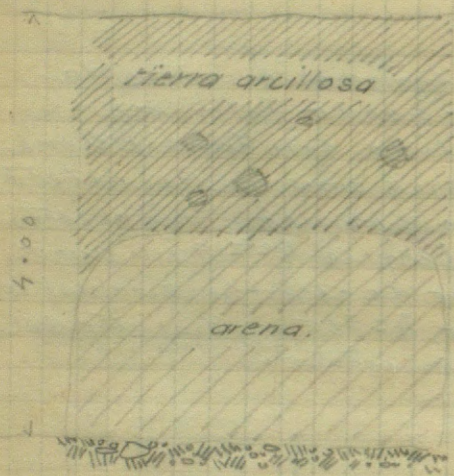 tierra arcillosa
4.00
arena.